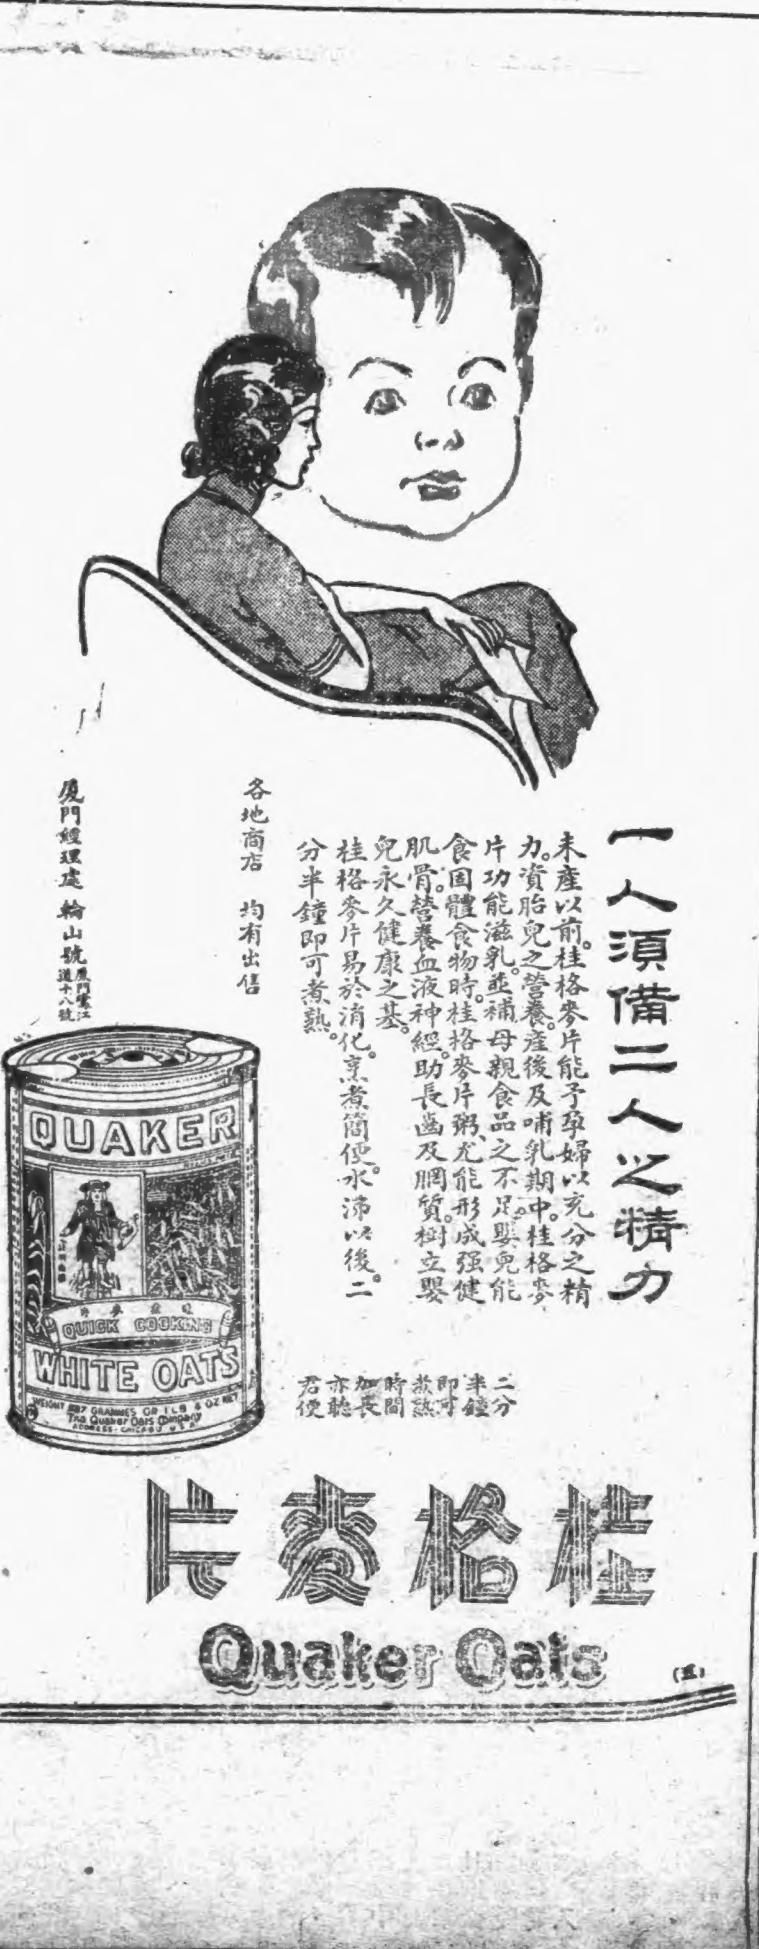 一人須備二人之精力
未產以前。桂格麥片能予孕婦以充分之精
力。資胎兒之營養。產後及哺乳期中。桂格麥
片功能滋乳。並補母親食品之不足。嬰兒能
食固體食物時。桂格麥片粥、尤能形成强健
肌骨。營養血液神經。助長齒及腦質。樹立嬰
兒永久健康之基。
桂格麥片易於消化。烹煮簡便。水沸以後。二
分半鐘即可煮熟。
各地商店 均有出售
廈門經理處 輪山號 廈門鷺江
道十八號
二分
半鐘
即可
煮熟
時間
加長
亦聽
君便
QUAKER
QUICK COOKING
WHITE OATS
WEIGHT 567 GRAMMES OR 1 LB 4 OZ NET
The Quaker Oats Company
ADDRESS-CHICAGO U.S.A.
桂格麥片
Quaker Oats